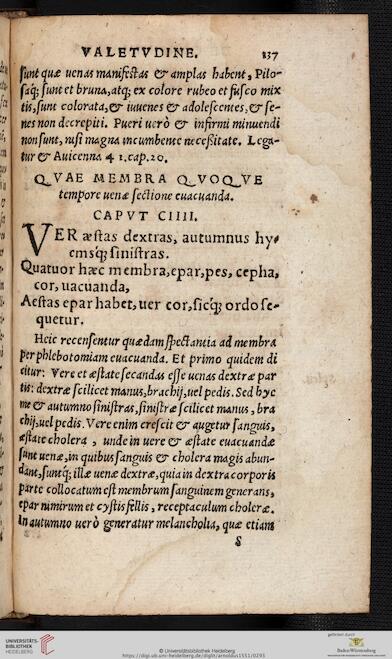 VALETVDINE. 137
sunt quæ uenas manifestas & amplas habent, Pilo-
saq́; sunt et bruna, atq; ex colore rubeo et fusco mix
tis, sunt colorata, & iuuenes & adolescentes, & se-
nes non decrepiti. Pueri uerò & infirmi minuendi
non sunt, nisi magna incumbente necessitate. Lega-
tur & Auicenna 4 1. cap. 20.
QVAE MEMBRA QVOQVE
tempore uenæ sectione euacuanda.
CAPVT CIIII.
VER æstas dextras, autumnus hy-
emsq́; sinistras.
Quatuor hæc membra, epar, pes, cepha,
cor, uacuanda,
Aestas epar habet, uer cor, sicq́; ordo se-
quetur.
Heic recensentur quædam spectantia ad membra
per phlebotomiam euacuanda. Et primo quidem di
citur: Vere et æstate secandas esse uenas dextræ par
tis: dextræ scilicet manus, brachij, uel pedis. Sed hye
me & autumno sinistras, sinistræ scilicet manus, bra
chij, uel pedis. Vere enim crescit & augetur sanguis,
æstate cholera, unde in uere & æstate euacuandæ
sunt uenæ, in quibus sanguis & cholera magis abun-
dant, suntq́; illæ uenæ dextræ, quia in dextra corporis
parte collocatum est membrum sanguinem generans,
epar nimirum et cystis fellis, receptaculum choleræ.
In autumno uerò generatur melancholia, quæ etiam
S
UNIVERSITÄTS-
BIBLIOTHEK
HEIDELBERG
© Universitätsbibliothek Heidelberg
https://digi.ub.uni-heidelberg.de/diglit/arnoldus1551/0293
gefördert durch
Baden-Württemberg